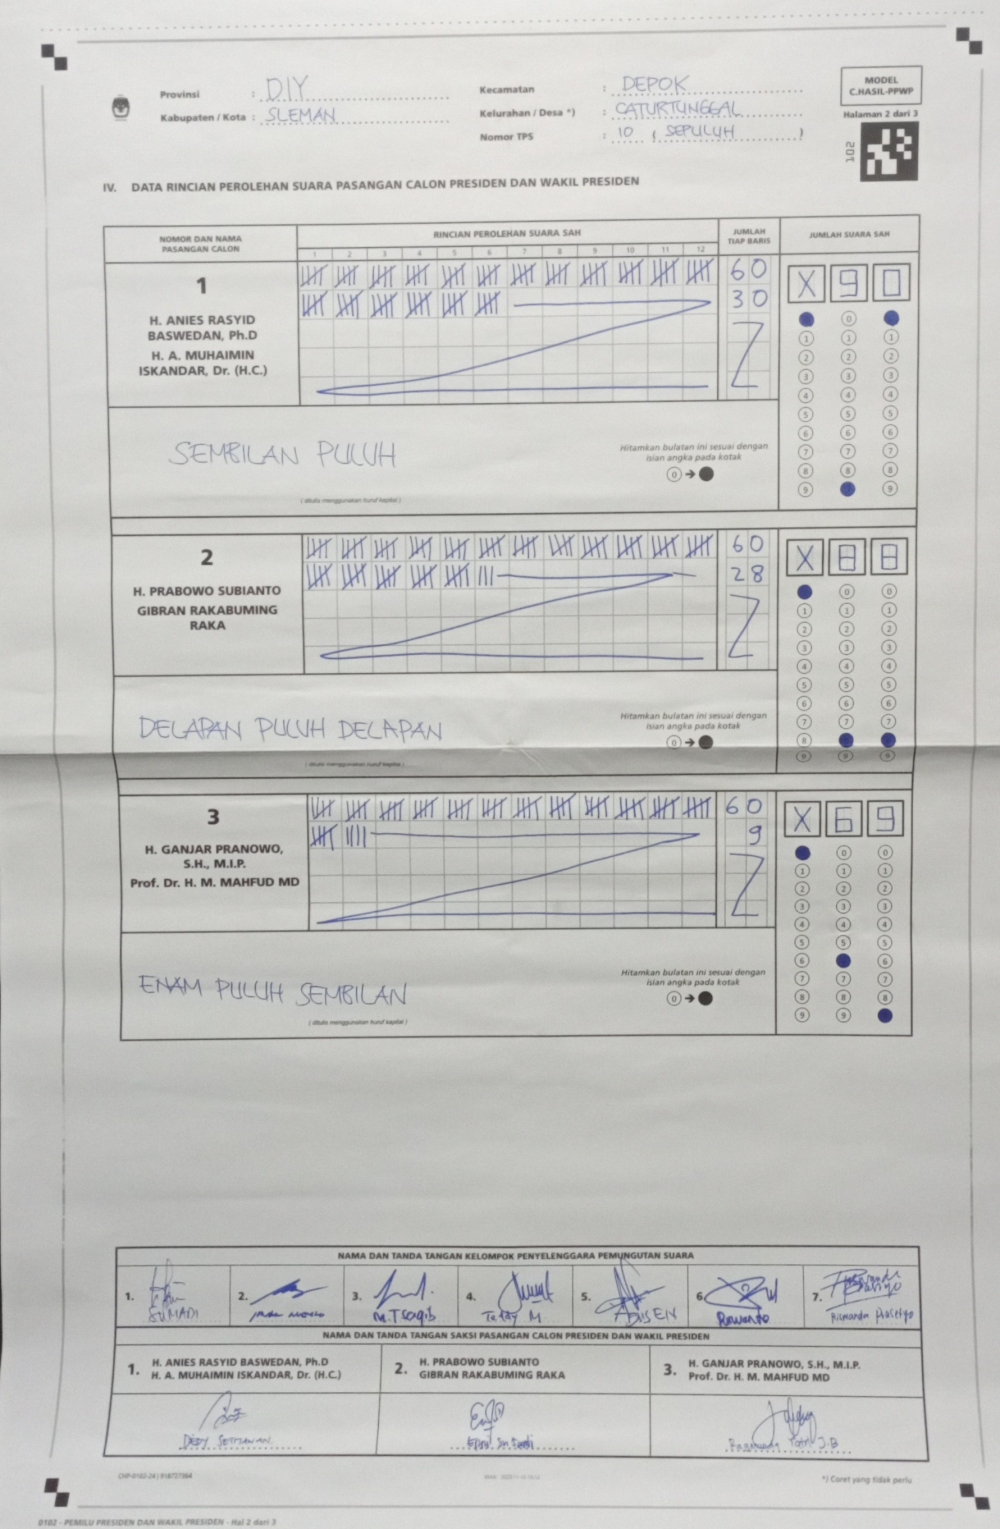 Provinsi : DIY
Kabupaten / Kota : SLEMAN
Kecamatan : DEPOK
Kelurahan / Desa *) : CATURTUNGGAL
Nomor TPS : 10 ( SEPULUH )
MODEL
C.HASIL-PPWP
Halaman 2 dari 3
102
IV. DATA RINCIAN PEROLEHAN SUARA PASANGAN CALON PRESIDEN DAN WAKIL PRESIDEN
NOMOR DAN NAMA
PASANGAN CALON
RINCIAN PEROLEHAN SUARA SAH
1 2 3 4 5 6 7 8 9 10 11 12
JUMLAH
TIAP BARIS
JUMLAH SUARA SAH
1
H. ANIES RASYID
BASWEDAN, Ph.D
H. A. MUHAIMIN
ISKANDAR, Dr. (H.C.)
60
30
X 9 0
0
1 1 1
2 2 2
3 3 3
4 4 4
5 5 5
6 6 6
7 7 7
8 8 8
9 9
SEMBILAN PULUH
( ditulis menggunakan huruf kapital )
Hitamkan bulatan ini sesuai dengan
isian angka pada kotak
0 →
2
H. PRABOWO SUBIANTO
GIBRAN RAKABUMING
RAKA
60
28
X 8 8
0 0
1 1 1
2 2 2
3 3 3
4 4 4
5 5 5
6 6 6
7 7 7
8
9 9 9
DELAPAN PULUH DELAPAN
( ditulis menggunakan huruf kapital )
Hitamkan bulatan ini sesuai dengan
isian angka pada kotak
0 →
3
H. GANJAR PRANOWO,
S.H., M.I.P.
Prof. Dr. H. M. MAHFUD MD
60
9
X 6 9
0 0
1 1 1
2 2 2
3 3 3
4 4 4
5 5 5
6 6
7 7 7
8 8 8
9 9
ENAM PULUH SEMBILAN
( ditulis menggunakan huruf kapital )
Hitamkan bulatan ini sesuai dengan
isian angka pada kotak
0 →
NAMA DAN TANDA TANGAN KELOMPOK PENYELENGGARA PEMUNGUTAN SUARA
1. SUMADI
2.
3.
4. M.
5.
6. Rowanto
7.
NAMA DAN TANDA TANGAN SAKSI PASANGAN CALON PRESIDEN DAN WAKIL PRESIDEN
1. H. ANIES RASYID BASWEDAN, Ph.D
H. A. MUHAIMIN ISKANDAR, Dr. (H.C.)
2. H. PRABOWO SUBIANTO
GIBRAN RAKABUMING RAKA
3. H. GANJAR PRANOWO, S.H., M.I.P.
Prof. Dr. H. M. MAHFUD MD
DEDY SETIAWAN
*) Coret yang tidak perlu
0102 - PEMILU PRESIDEN DAN WAKIL PRESIDEN - Hal 2 dari 3